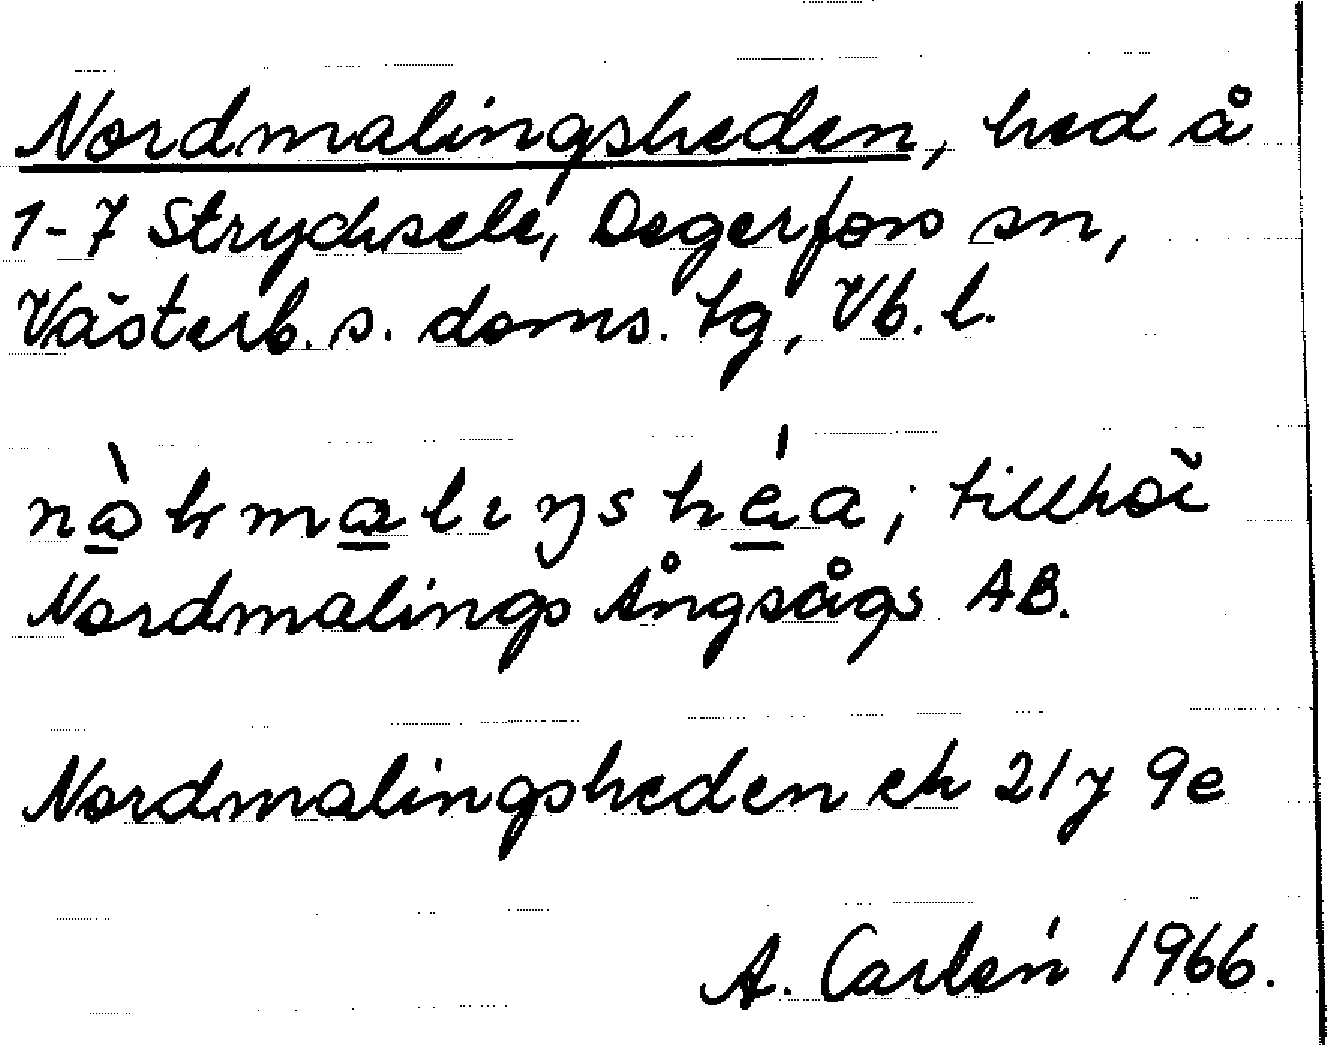 Nordmalingsheden, hed å
1-7 Strycksele, Degerfors sn,
Västerb. s. doms. tg, Vb. l.
tillhör
Nordmalings Ångsågs AB.
Nordmalingsheden ek 21 y 9e
A. Carlén 1966.